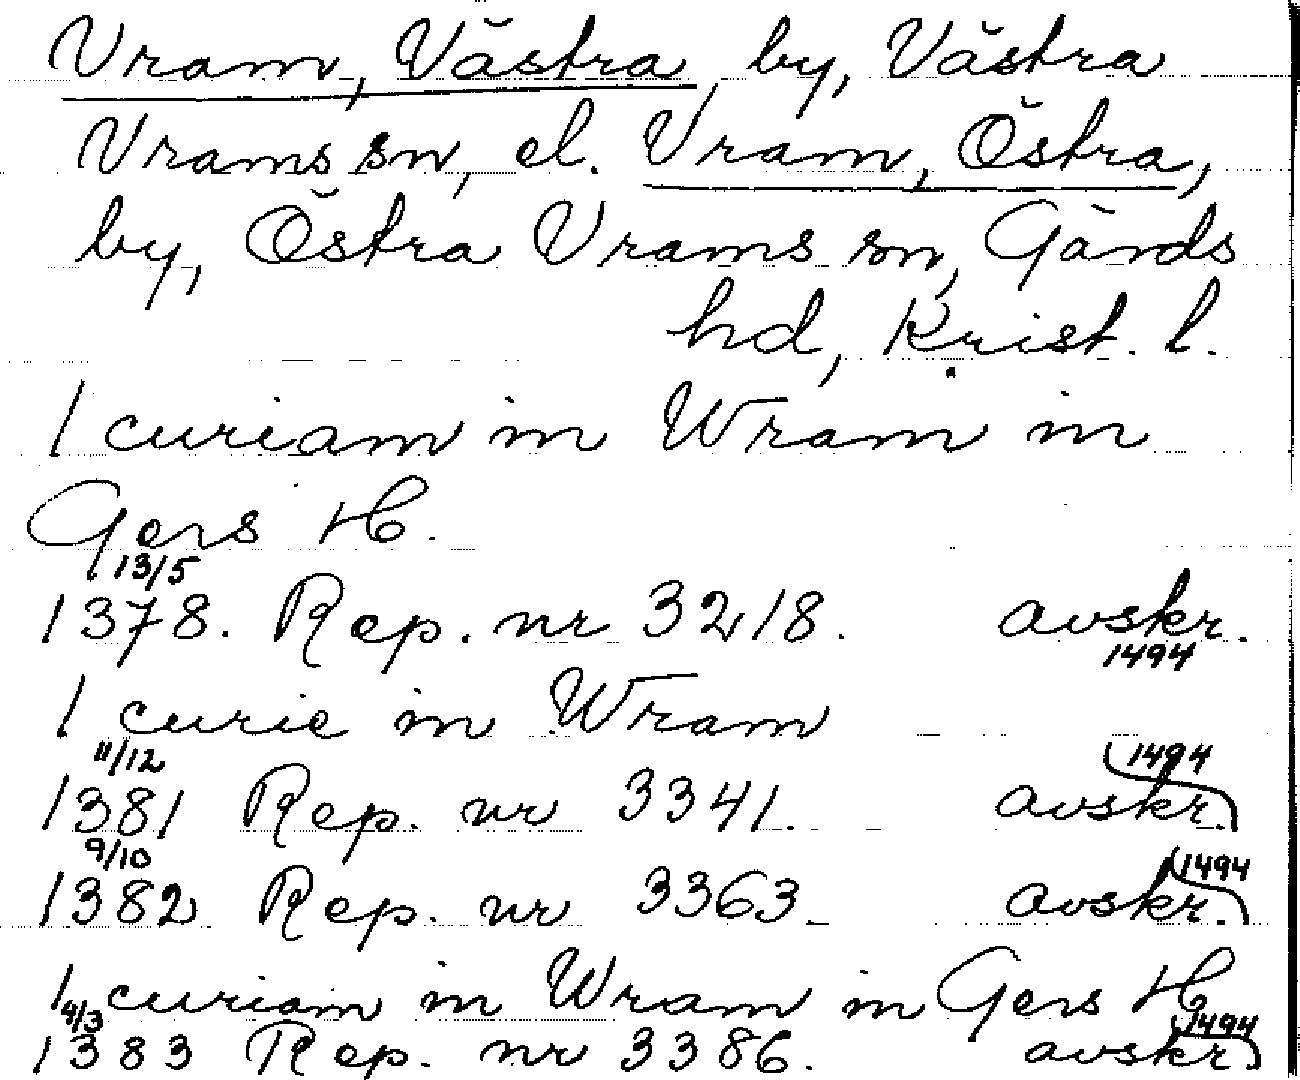 Vram, Västra, by, Västra
Vrams sn, el. Vram, Östra,
by, Östra Vrams sn, Gärds
hd, Krist. l.
1 curiam in Wram in
Gers H.
13/5
1378. Rep. nr 3218. avskr.
1494
1 curie in Wram
11/12 1494
1381 Rep. nr 3341. avskr.
9/10 1494
1382 Rep. nr 3363. avskr.
1 curiam in Wram in Gers H
4/3 1494
1383 Rep. nr 3386. avskr